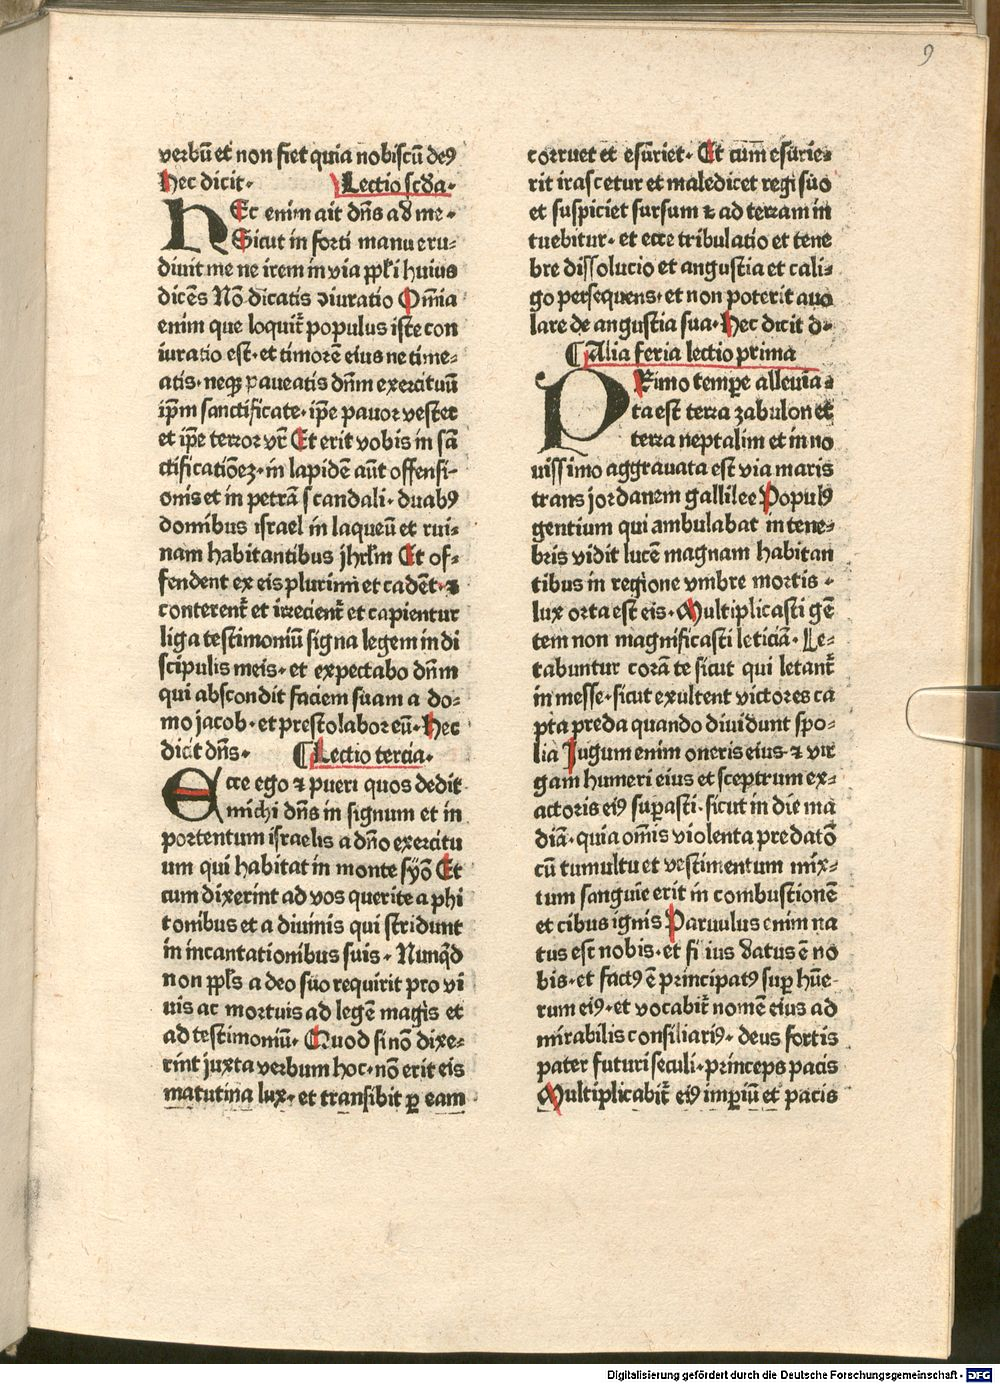 9
verbū et non fiet quia nobiscū deꝰ
Hec dicit· Lectio scda·
HEc enim ait dn̄s ad me·
Sicut in forti manu eru-
diuit me ne irem in via ppl̄i huius
dicēs Nō dicatis ꝯiuratio Om̄ia
enim que loquit᷑ populus iste con
iuratio est·et timorē eius ne time-
atis·neqꝫ paueatis dn̄m exercituū
ip̄m sanctificate·ip̄e pauor vester
et ip̄e terror vr̄ Et erit vobis in sā
ctificationēꝫ·in lapidē aūt offensi-
onis et in petrā scandali·duabꝰ
domibus israel in laqueū et rui-
nam habitantibus jhrl̄m Et of-
fendent ex eis plurimi et cadēt·⁊
conterent᷑ et irretient᷑ et capientur
liga testimoniū signa legem in di
scipulis meis·et expectabo dn̄m
qui abscondit faciem suam a do-
mo jacob·et prestolabor eū·Hec
dicit dn̄s· ¶Lectio tercia·
Ecce ego ⁊ pueri quos dedit
michi dn̄s in signum et in
portentum israelis a dn̄o exercitu
um qui habitat in monte syō Et
cum dixerint ad vos querite a phi
tonibus et a diuinis qui stridunt
in incantationibus suis· Nunqd̄
non ppl̄s a deo suo requirit pro vi
uis ac mortuis ad legē magis et
ad testimoniū· Quod si nō dixe-
rint juxta verbum hoc·nō erit eis
matutina lux·et transibit ꝑ eam
corruet et esuriet· Et cum esurie-
rit irascetur et maledicet regi suo
et suspiciet sursum ⁊ ad terram in
tuebitur·et ecce tribulatio et tene
bre dissolucio et angustia et cali-
go persequens·et non poterit auo
lare de angustia sua·Hec dicit d·
¶Alia feria lectio prima
PRimo tempe alleuia-
ta est terra zabulon et
terra neptalim et in no
uissimo aggrauata est via maris
trans jordanem gallilee Populꝰ
gentium qui ambulabat in tene-
bris vidit lucē magnam habitan
tibus in regione vmbre mortis·
lux orta est eis·Multiplicasti gē
tem non magnificasti leticiā· Le-
tabuntur corā te sicut qui letant᷑
in messe·sicut exultent victores ca
pta preda quando diuidunt spo-
lia Jugum enim oneris eius·⁊ vir
gam humeri eius et sceptrum ex-
actoris eiꝰ suꝑasti·sicut in die ma
diā·quia om̄is violenta predatō
cū tumultu et vestimentum mix-
tum sanguīe erit in combustionē
et cibus ignis Paruulus enim na
tus est nobis·et filius datus ē no
bis·et factꝰ ē principatꝰ suꝑ hūe-
rum eiꝰ·et vocabit᷑ nomē eius ad
mirabilis consiliariꝰ·deus fortis
pater futuri seculi·princeps pacis
Multiplicabit᷑ eiꝰ imꝑiū et pacis
Digitalisierung gefördert durch die Deutsche Forschungsgemeinschaft - DFG